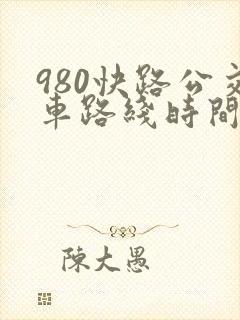 980快路公交
車路綫時間
陳大愚